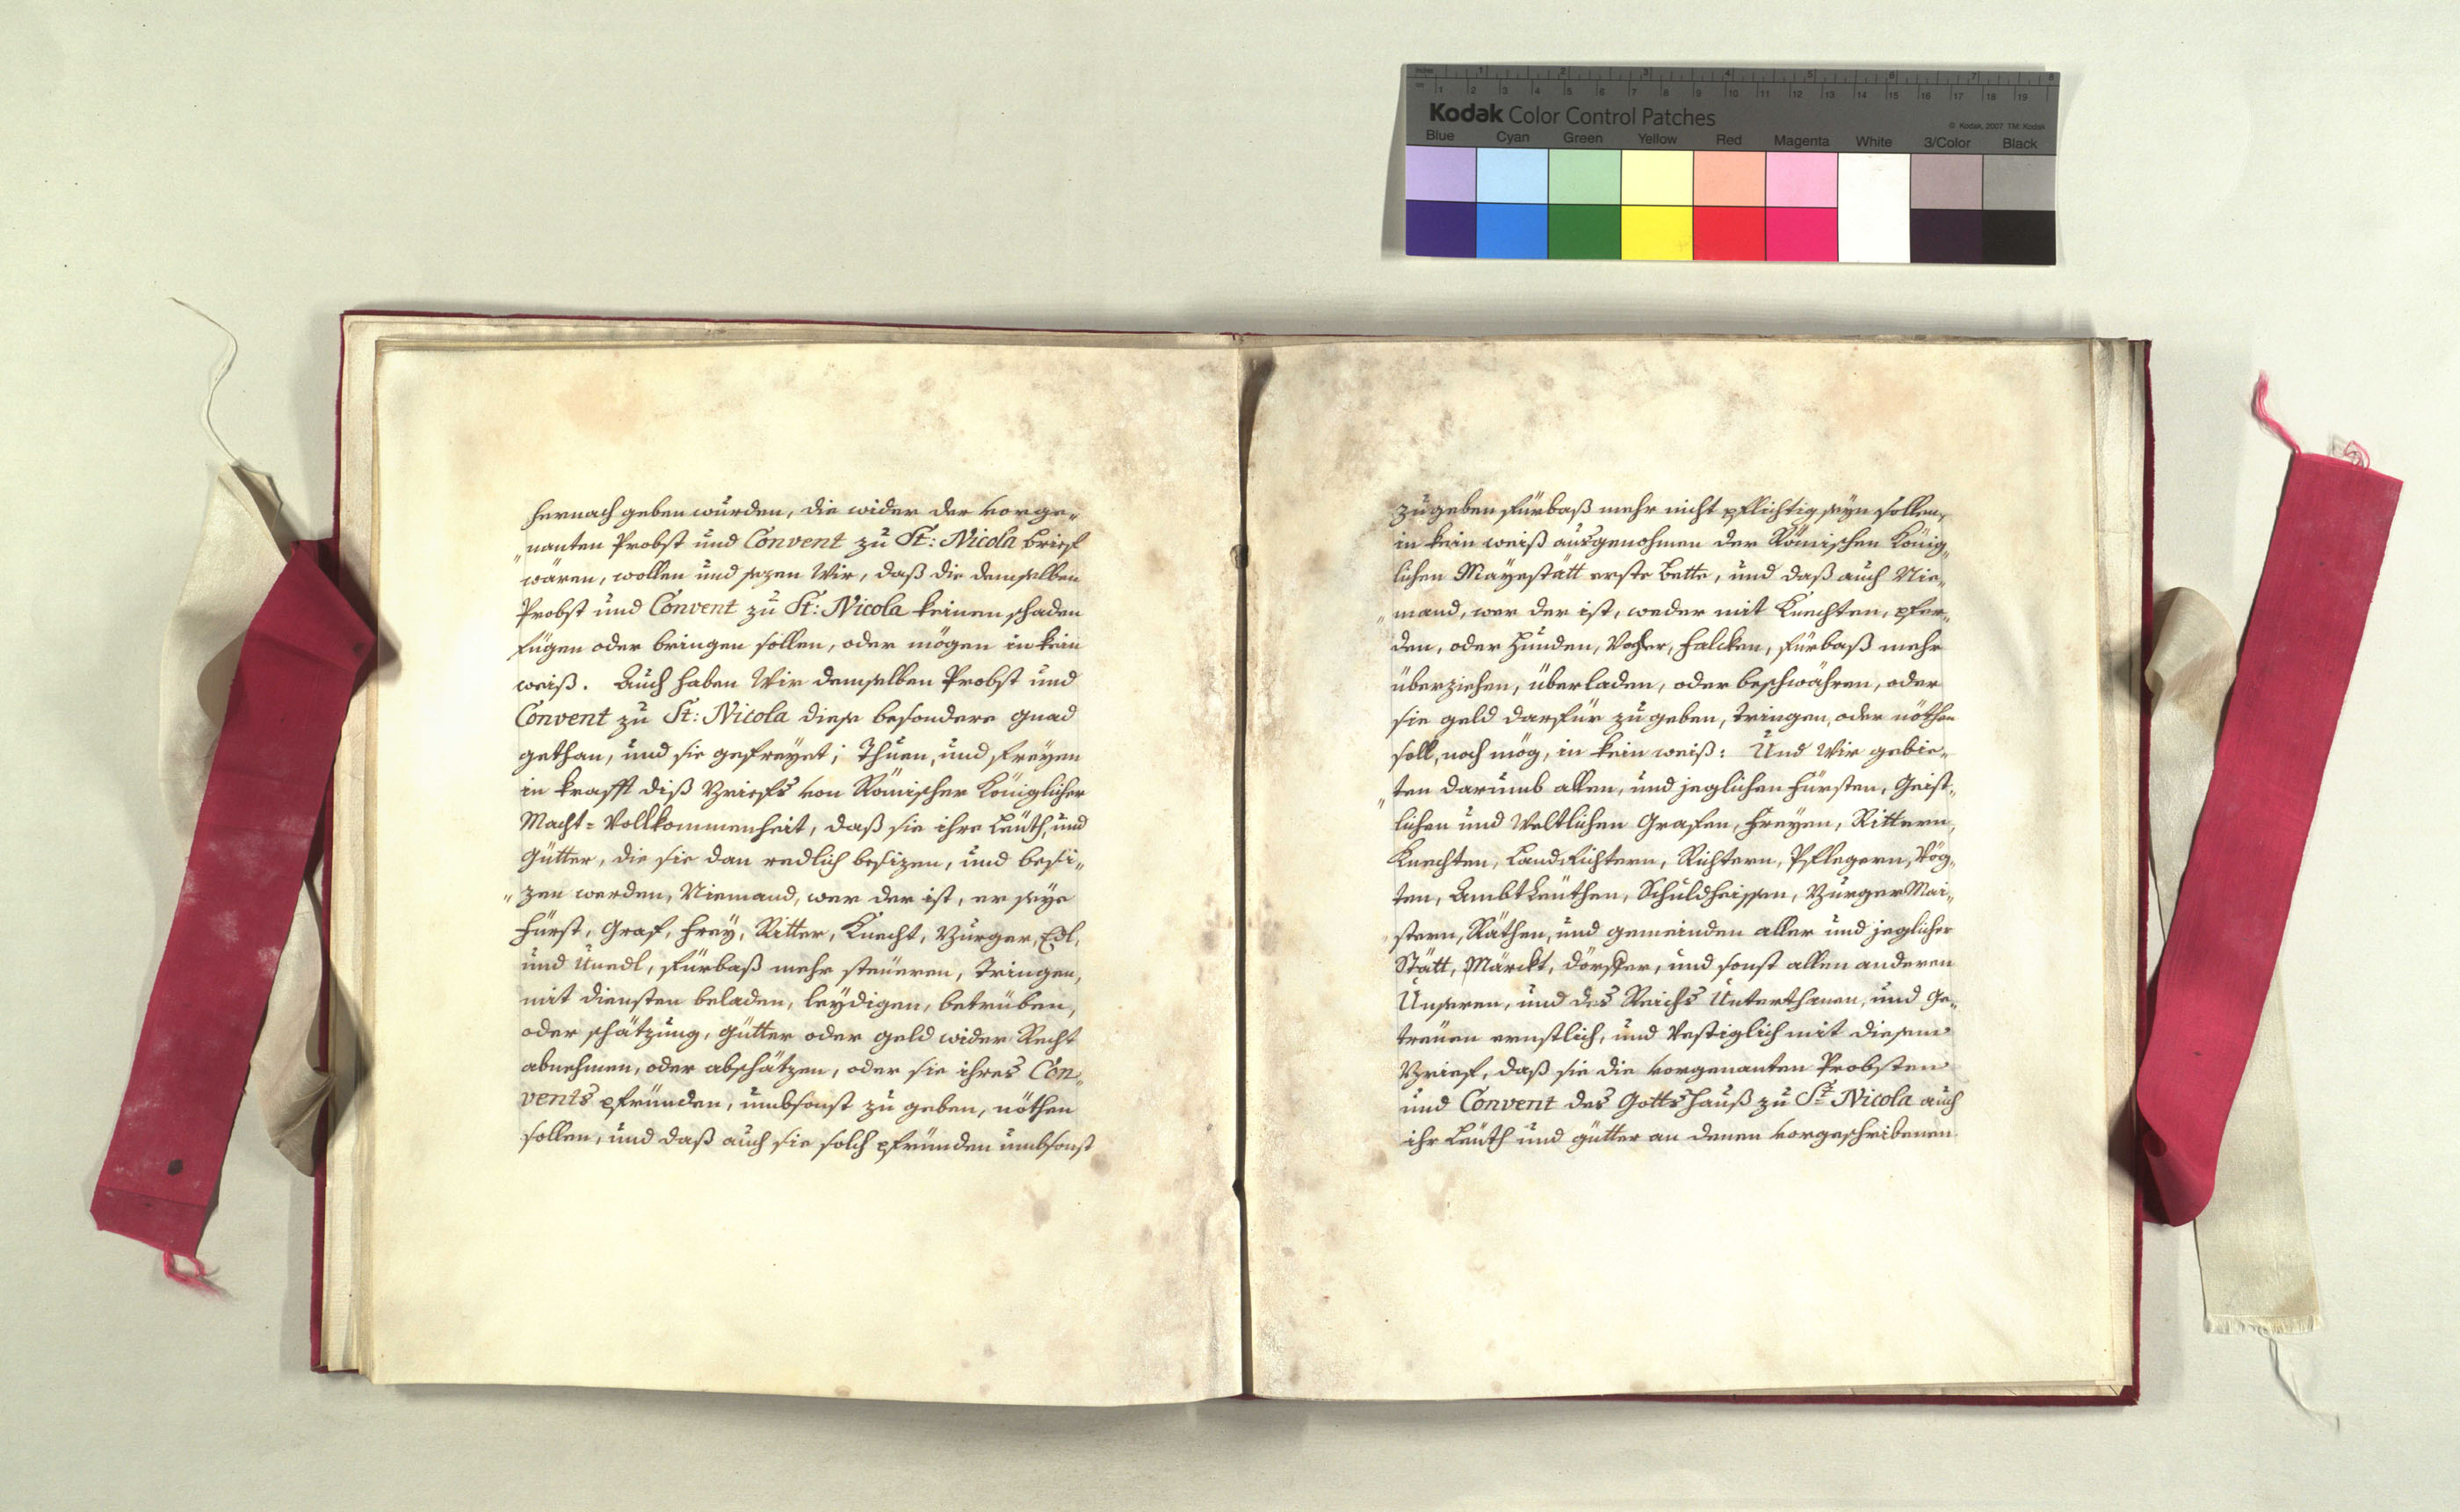 Kodak Color Control Patches
© Kodak, 2007 TM: Kodak
Blue Cyan Green Yellow Red Magenta White 3/Color Black
hernach geben wurden, die wider der vorge„
„nanten Probst und Convent zu St: Nicola brief
wären, wollen und sezen Wir, daß die demselben
Probst und Convent zu St: Nicola keinen schaden
fügen oder bringen sollen, oder mögen in kein
weiß. Auch haben Wir demselben Probst und
Convent zu St: Nicola diese besondere gnad
gethan, und sie gefreyet; Thuen, und freyen
in krafft diß Briefs von Römischer Königlicher
Macht=Vollkommenheit, daß sie ihre Leüth, und
Gütter, die sie dan redlich besizen, und besi„
„zen werden, Niemand, wer der ist, er seye
Fürst, Graf, Frey, Ritter, Knecht, Burger, Edl,
und Unedl, fürbaß mehr steüeren, Tringen,
mit diensten beladen, leydigen, betrüben,
oder schätzung, gütter oder geld wider Recht
abnehmen, oder abschätzen, oder sie ihres Con„
vents pfründen, umbsonst zu geben, nöthen
sollen, und daß auch sie solch pfründen umbsonst
zu geben fürbaß mehr nicht pflichtig seyn sollen,
in kein weiß ausgenohmen der Römischen König„
lichen Mayestätt erste Bette, und daß auch Nie„
„mand, wer der ist, weder mit Knechten, pfer„
den, oder Hunden, Falcken, fürbaß mehr
überziehen, überladen, oder beschwähren, oder
sie geld darfür zu geben, tringen, oder nöthen
soll, noch mög, in kein weiß: Und Wir gebie„
„ten darumb allen, und jeglichen Fürsten, Geist„
lichen und Weltlichen Grafen, Freyen, Rittern,
Knechten, LandRichtern, Richtern, Pflegern, Vög„
ten, AmbtLeüthen, Schuldheissen, BurgerMai„
„stern, Räthen, und gemeinden aller und jeglicher
Stätt, Märckt, dörffer, und sonst allen anderen
Unseren, und des Reichs Unterthanen, und Ge„
treüen ernstlich, und Vestiglich mit diesem
Brief, daß sie die vorgenanten Probsten
und Convent des Gottshauß zu St Nicola auch
ihr Leüth und gütter an denen vorgeschribenen